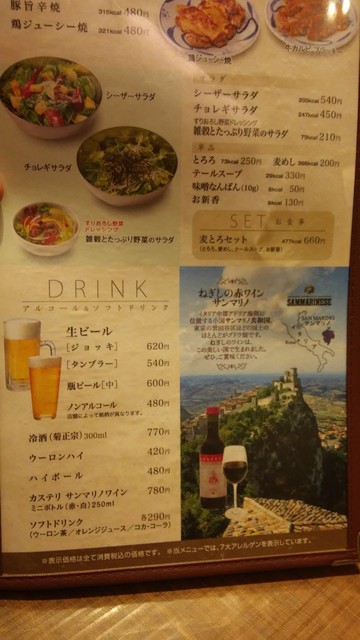 豚旨辛焼 315kcal 480円
鶏ジューシー焼 321kcal 480円
シーザーサラダ
チョレギサラダ
すりおろし野菜
ドレッシング
雑穀とたっぷり野菜のサラダ
鶏ジューシー焼
牛カルビ
サラダ
シーザーサラダ 540円
チョレギサラダ 247kcal 450円
すりおろし野菜ドレッシング
雑穀とたっぷり野菜のサラダ 79kcal 210円
単品
とろろ 73kcal 250円 麦めし 366kcal 200円
テールスープ 29kcal 330円
味噌なんばん(10g) 8kcal 50円
お新香 9kcal 130円
SET お食事
麦とろセット 477kcal 660円
(とろろ、麦めし、テールスープ、お新香)
DRINK
アルコール&ソフトドリンク
生ビール
[ジョッキ] 620円
[タンブラー] 540円
瓶ビール[中] 600円
ノンアルコール 480円
店舗によって銘柄が異なります。
冷酒(菊正宗)300ml 770円
ウーロンハイ 420円
ハイボール 480円
カステリ サンマリノワイン 780円
ミニボトル(赤・白)250ml
ソフトドリンク 各290円
(ウーロン茶/オレンジジュース/コカ・コーラ)
ねぎしの赤ワイン
サンマリノ
イタリア中部アドリア海側に
位置する小国サンマリノ共和国。
東京の世田谷区ほどの国土の
ほとんどがブドウ畑です。
ねぎしのワインは、
この美しい国で生まれました。
ぜひ、ご賞味ください。
SAMMARINESE
SAN MARINO
サンマリノ
Roma
※表示価格は全て消費税込の価格です。 ※当メニューでは、7大アレルゲンを表示しています。